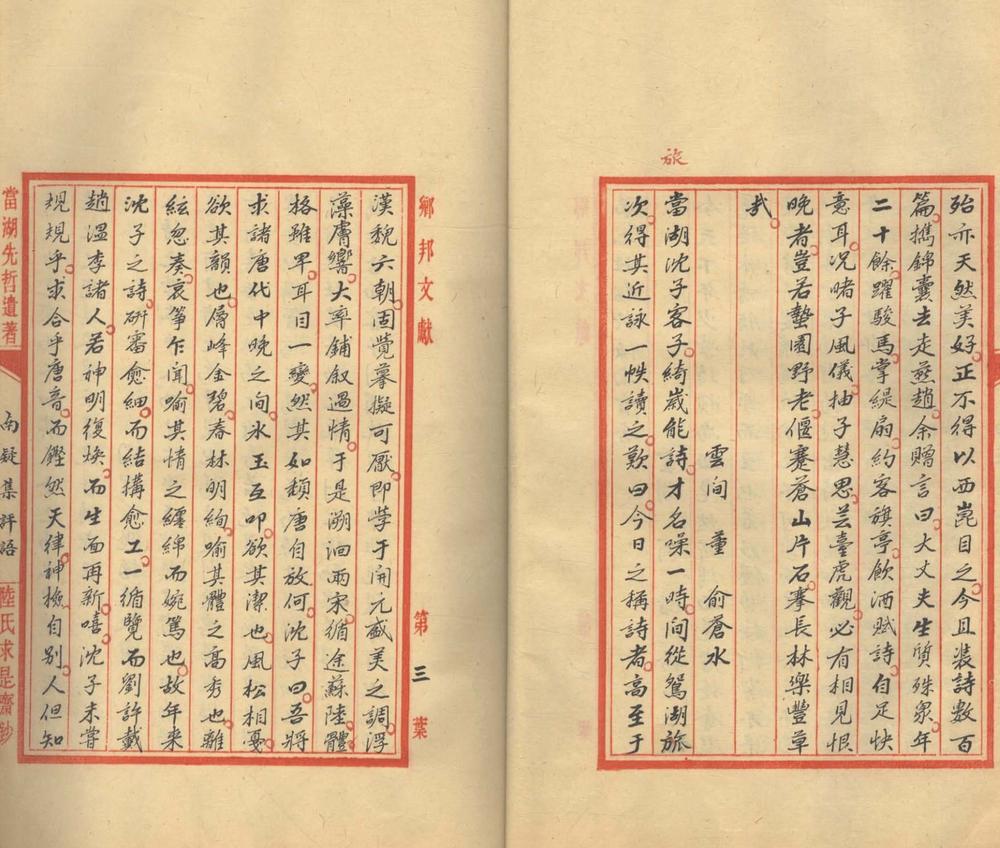 旅
殆亦天然美好正不得以西崑目之今且裝詩數百
篇攜錦囊去走燕趙余贈言曰大丈夫生質殊衆年
二十餘躍駿馬掌緹扇約客旗亭飲酒賦詩自足快
意耳况啫子風儀抽子慧思芸臺虎觀必有相見恨
晚者豈若蟄園野老偃蹇蒼山片石搴長林樂豐草
哉
雲间 董 俞蒼水
當湖沈子客子綺歲能詩才名噪一時间從鴛湖旅
次得其近詠一帙讀之歎曰今日之稱詩者高至于
鄉邦文獻
第三葉
漢魏六朝固覺摹擬可厭即学于開元盛美之調浮
藻膚響大率鋪叙過情于是溯洄兩宋循途蘇陸體
格雖早耳目一變然其如頹唐自放何沈子曰吾將
求諸唐代中晚之间氷玉互叩欲其潔也風松相戞
欲其韻也層峰金碧春林明絢喻其體之高秀也離
絃忽奏哀筝乍闻喻其情之纏綿而婉篤也故年来
沈子之詩研審愈細而結構愈工一循覽而劉許戴
趙溫李諸人若神明復煥而生面再新嘻沈子未嘗
規規乎求合乎唐音而鏗然天律神撫自别人但知
當湖先哲遺著
南疑集評語
陸氏求是齋鈔